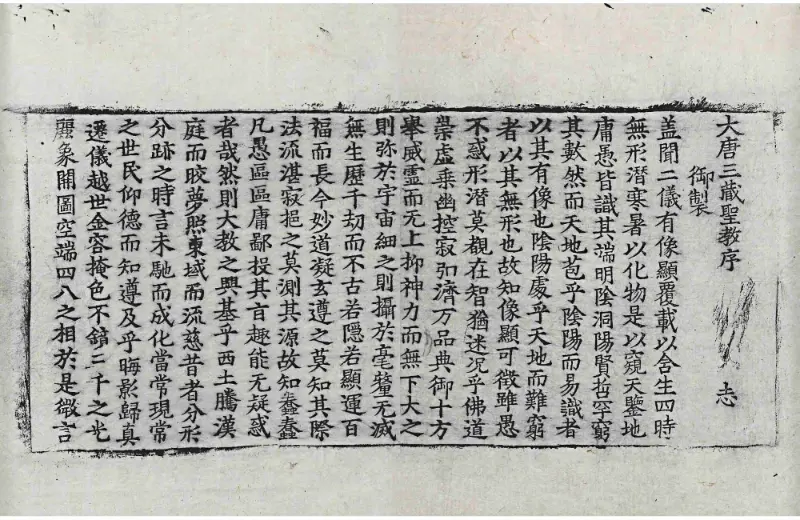 大唐三藏聖教序
志
御製
盖聞二儀有像顯覆載以含生四時
無形潜寒暑以化物是以窺天鑒地
庸愚皆識其端明陰洞陽賢哲罕窮
其數然而天地苞乎陰陽而易識者
以其有像也陰陽處乎天地而難窮
者以其無形也故知像顯可徵雖愚
不惑形潜莫覩在智猶迷况乎佛道
崇虛乘幽控寂弘濟万品典御十方
舉威靈而无上抑神力而無下大之
則弥於宇宙細之則攝於毫釐无滅
無生歷千劫而不古若隱若顯運百
福而長今妙道凝玄遵之莫知其際
法流湛寂挹之莫測其源故知蠢蠢
凡愚區區庸鄙投其旨趣能无疑惑
者哉然則大教之興基乎西土騰漢
庭而皎夢照東域而流慈昔者分形
分跡之時言未馳而成化當常現常
之世民仰德而知遵及乎晦影歸真
遷儀越世金容掩色不鏡三千之光
麗象開圖空端四八之相於是微言